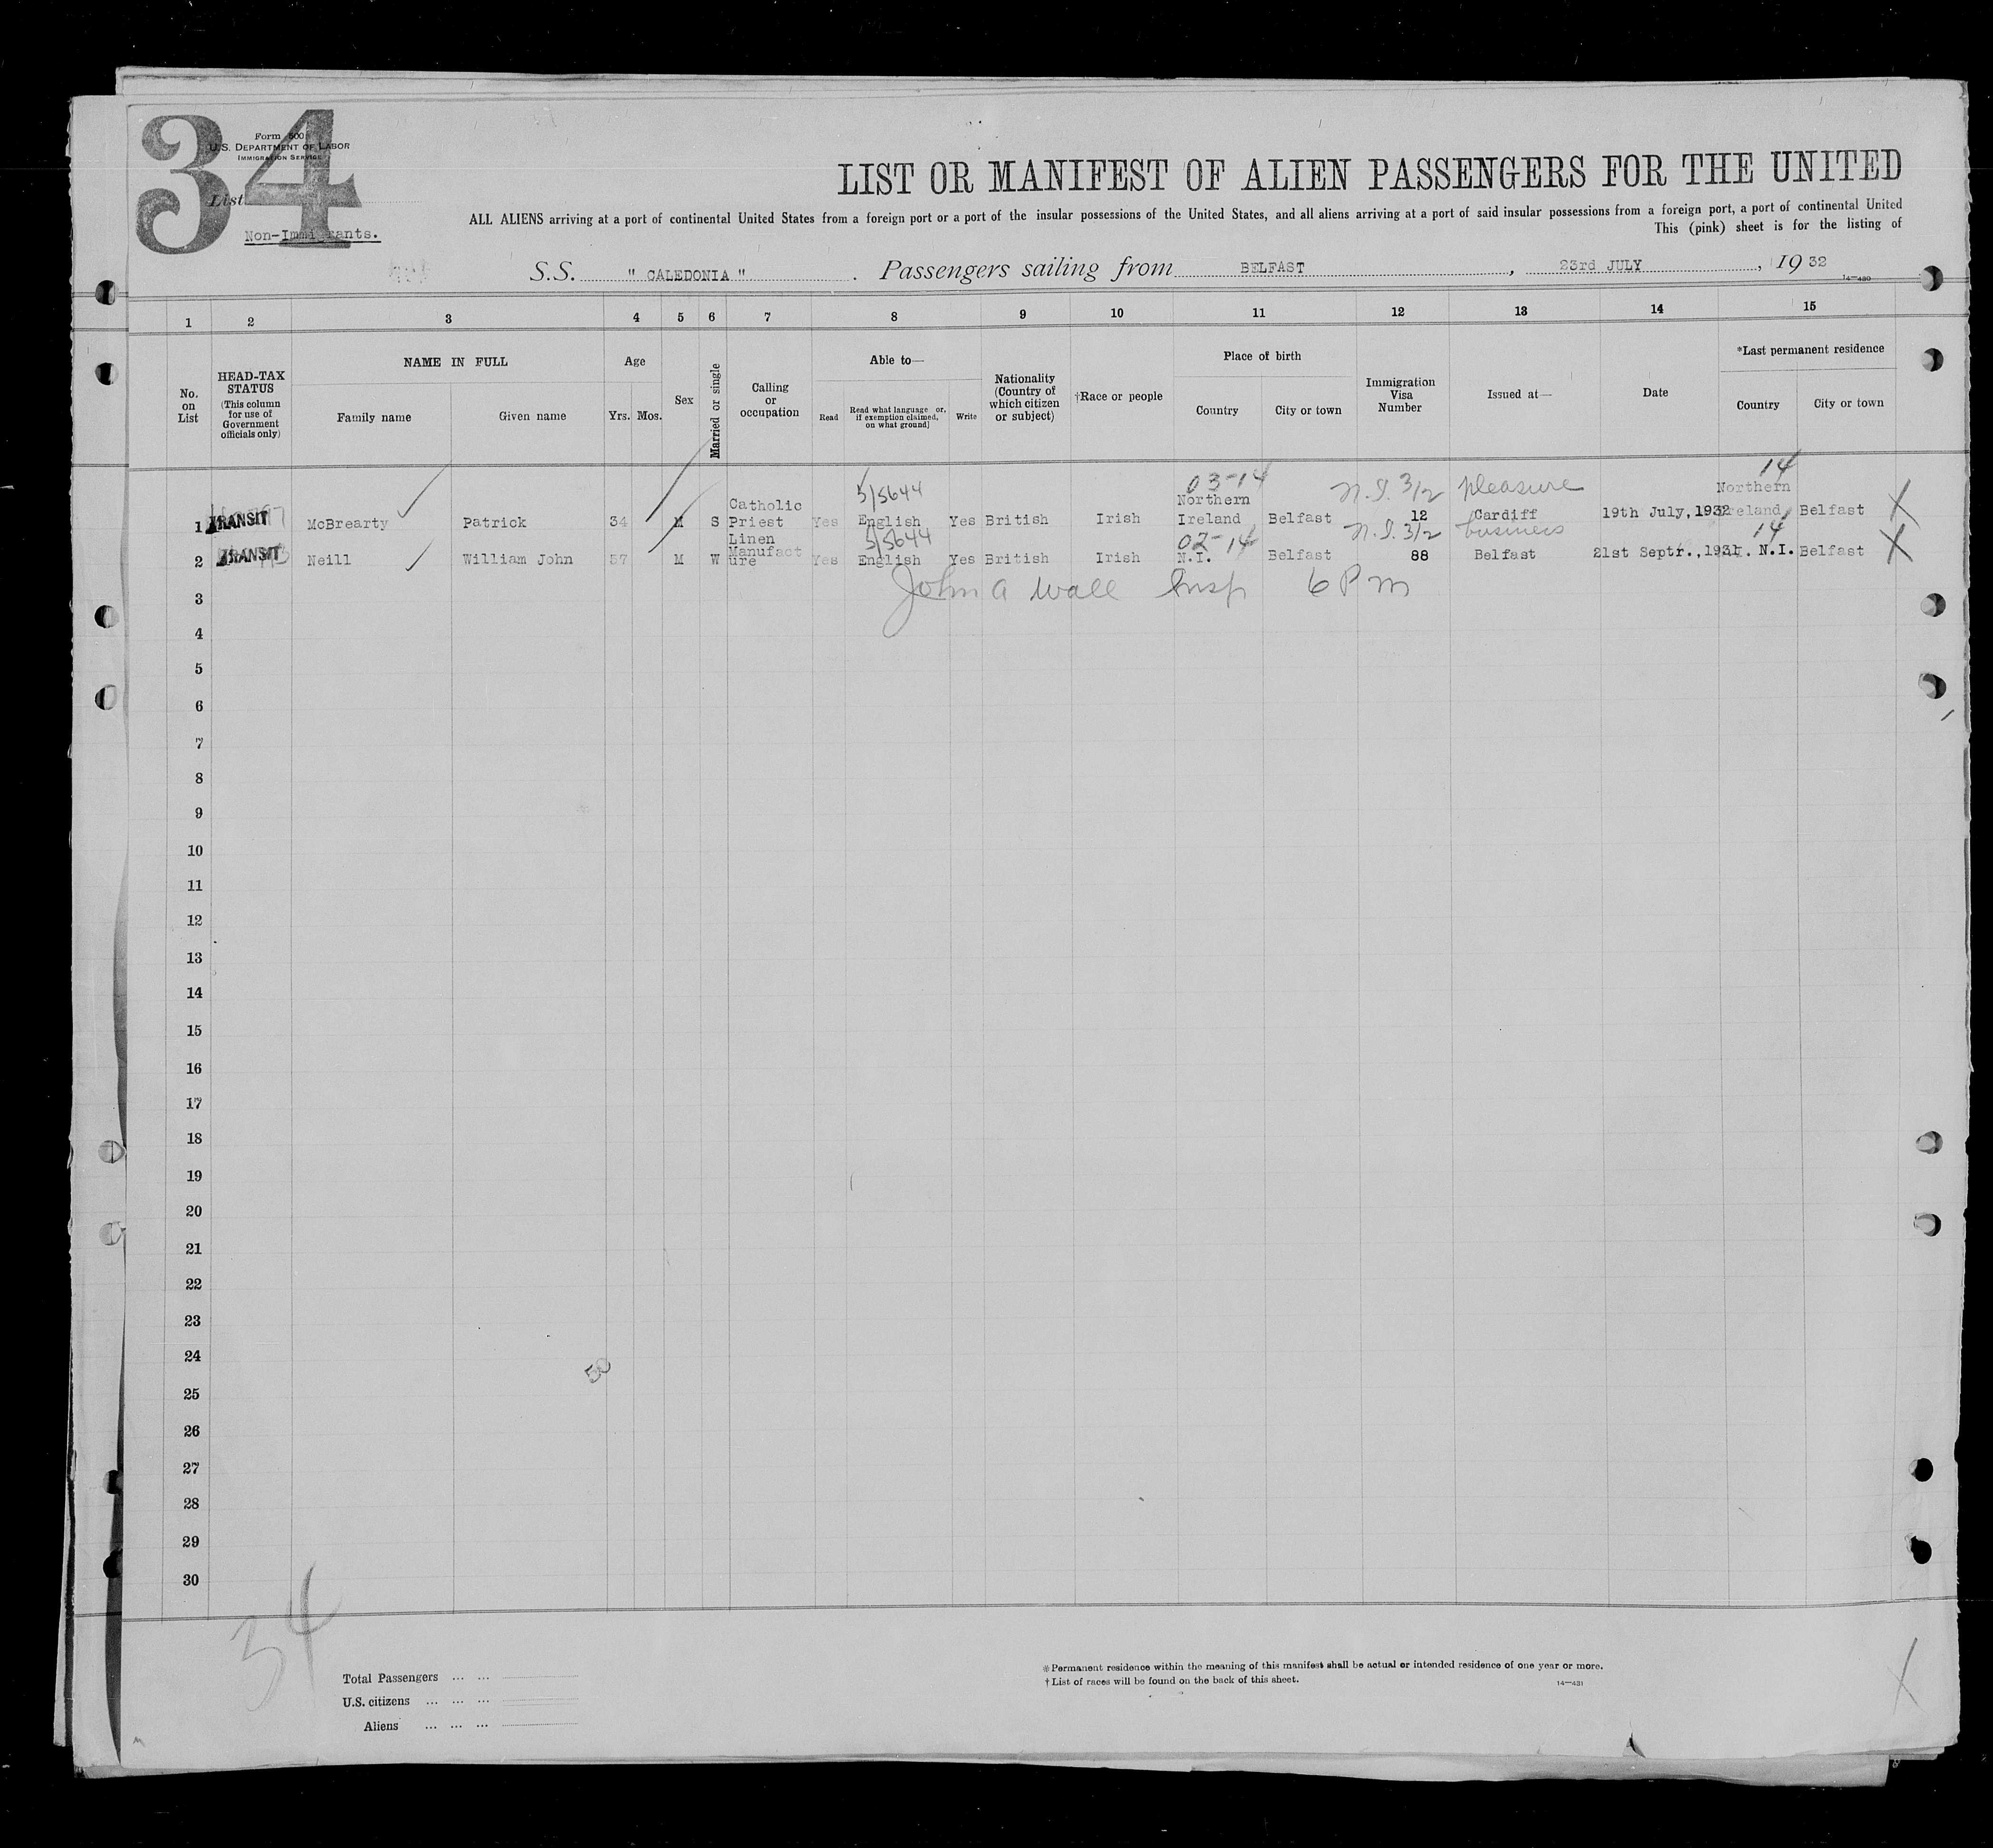 34
Form 500
U.S. DEPARTMENT OF LABOR
IMMIGRATION SERVICE
List
Non-Immigrants.
LIST OR MANIFEST OF ALIEN PASSENGERS FOR THE UNITED
ALL ALIENS arriving at a port of continental United States from a foreign port or a port of the insular possessions of the United States, and all aliens arriving at a port of said insular possessions from a foreign port, a port of continental United
This (pink) sheet is for the listing of
S.S. " CALEDONIA " . Passengers sailing from BELFAST , 23rd JULY , 19 32
14—430
1 2 3 4 5 6 7 8 9 10 11 12 13 14 15
No. on List
HEAD-TAX STATUS (This column for use of Government officials only)
NAME IN FULL
Family name
Given name
Age
Yrs. Mos.
Sex
Married or single
Calling or occupation
Able to—
Read
Read what language or, if exemption claimed, on what ground]
Write
Nationality (Country of which citizen or subject)
†Race or people
Place of birth
Country
City or town
Immigration Visa Number
Issued at—
Date
*Last permanent residence
Country
City or town
5/5644 03-14 N.I. 3/2 pleasure 14
1 TRANSIT McBrearty Patrick 34 M S Catholic Priest Yes English Yes British Irish Northern Ireland Belfast 12 Cardiff 19th July,1932 Northern Ireland Belfast X
5/5644 02-14 N.I. 3/2 business 14
2 TRANSIT Neill William John 57 M W Linen Manufact ure Yes English Yes British Irish N.I. Belfast 88 Belfast 21st Septr.,1931 N.I. Belfast X
John A Wall Insp 6 PM
3
4
5
6
7
8
9
10
11
12
13
14
15
16
17
18
19
20
21
22
23
24
50
25
26
27
28
29
30
34
Total Passengers ... ...
U.S. citizens ... ... ...
Aliens ... ... ...
*Permanent residence within the meaning of this manifest shall be actual or intended residence of one year or more.
†List of races will be found on the back of this sheet.
14—431
X